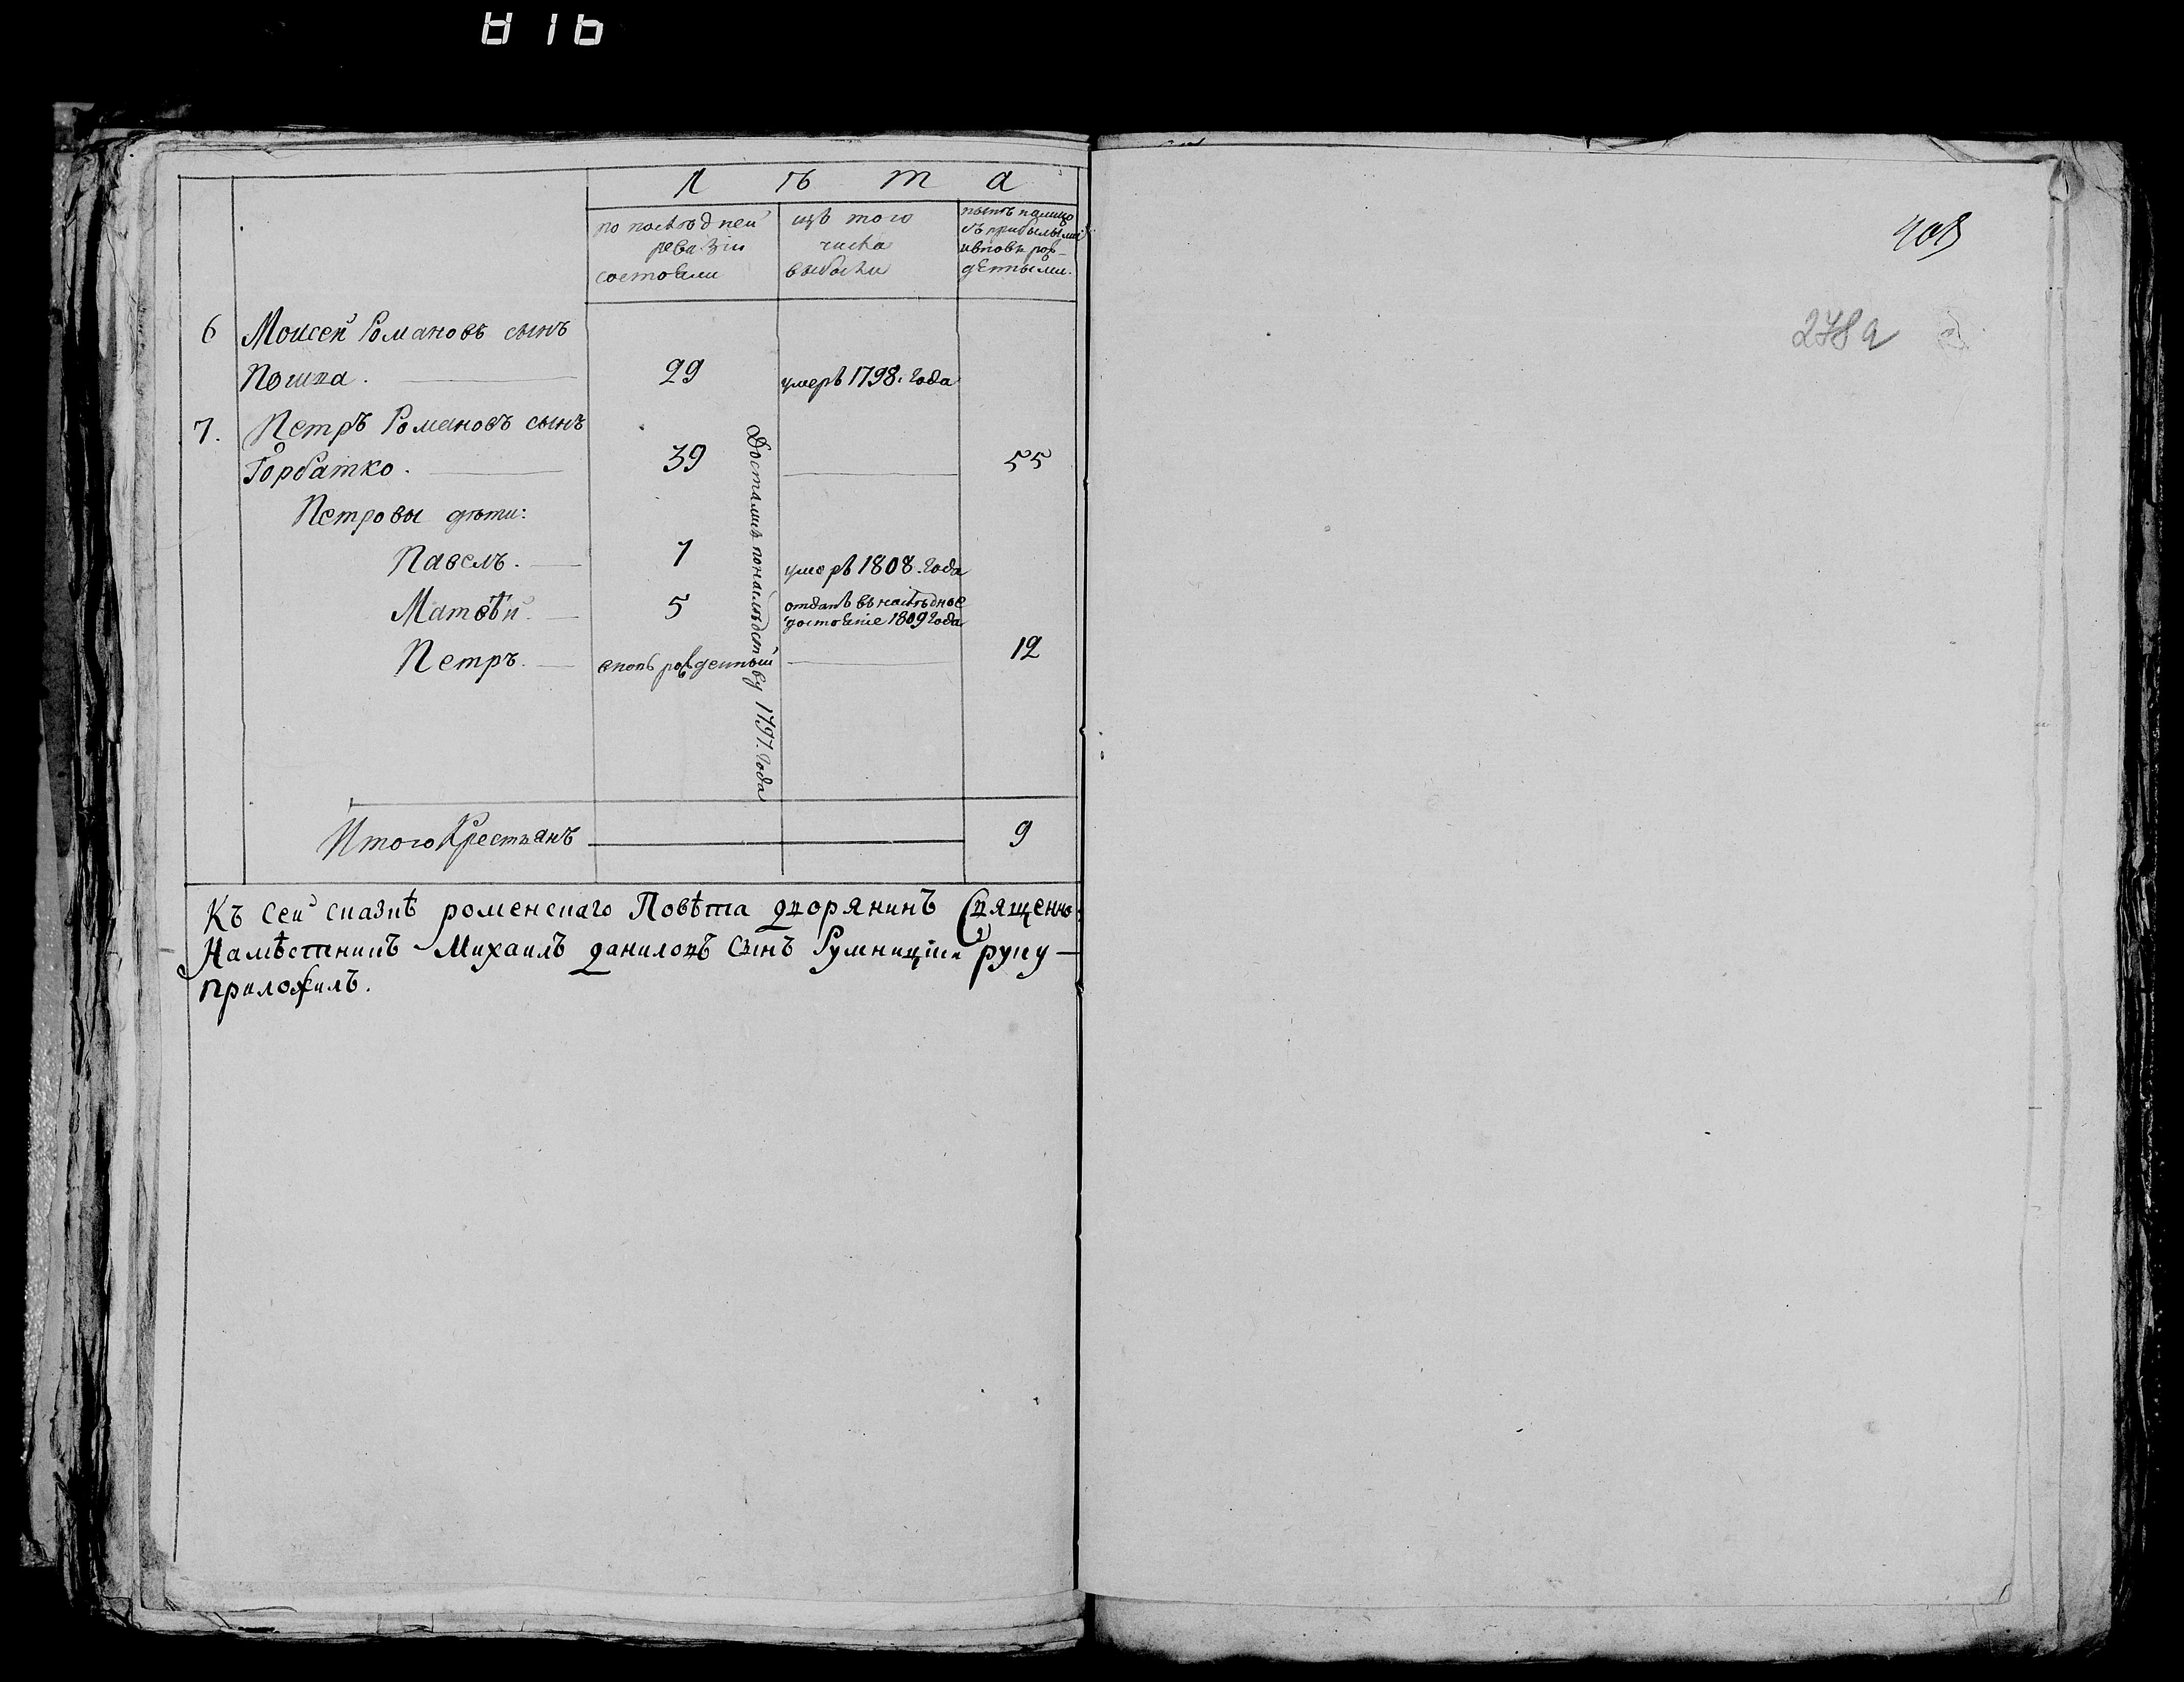 816
Лѣта
по последней ревизіи состояли
изъ того числа выбыли
нынѣ налицо съ прибылыми и вновь рожденными.
6 Моисей Романовъ сынъ
Кошка. 29 умеръ 1798. года
7. Петръ Романовъ сынъ
Горбатко. 39 55
Петровы дѣти:
Павелъ. 7 умеръ 1808. года
Матвѣй. 5 отданъ въ наслѣдное достояніе 1809 года
Петръ. вновь рожденный 12
Достались по наслѣдству 1797. года
Итого Крестьянъ 9
Къ сей сказкѣ роменскаго Повѣта дворянинъ Священно
Намѣстникъ Михаилъ даниловъ Сынъ руку
приложилъ.
408
278 а